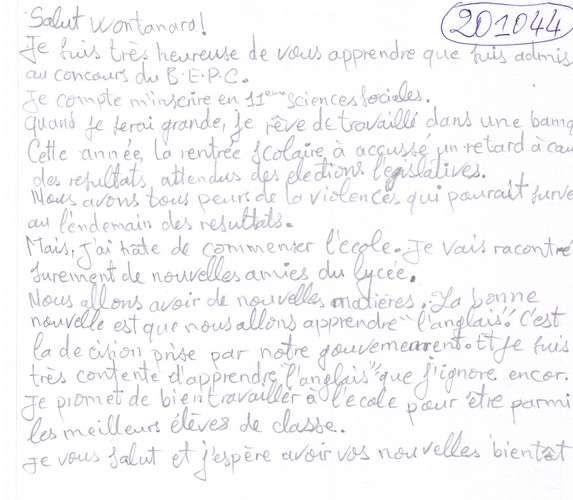 Salut Wontanara!
201044
Je suis très heureuse de vous apprendre que suis admis
au concours du B.E.P.C.
Je compte m'inscrire en 11eme Sciences Sociales.
Quand je serai grande, je rêve de travaillé dans une banq
Cette année, la rentrée scolaire à accussé un retard à cau
des resultats attendus des elections legislatives.
Nous avons tous peurs de la violences qui pourait surve
au lendemain des resultats.
Mais, j'ai hâte de commenser l'ecole. Je vais racontré
surement de nouvelles amies du lycée.
Nous allons avoir de nouvelles matières. La bonne
nouvelle est que nous allons apprendre "l'anglais". C'est
la decision prise par notre gouvernement. Et je suis
très contente d'apprendre "l'anglais" que j'ignore encor.
Je promet de bien travailler à l'école pour être parmi
les meilleurs élèves de classe.
Je vous salut et j'espère avoir vos nouvelles bientôt